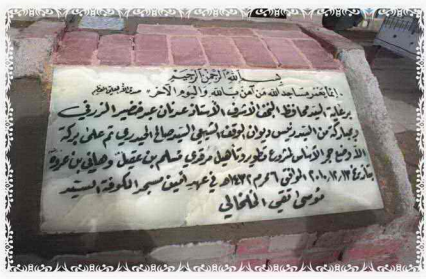 بسم الله الرحمن الرحيم
إنما يعمر مساجد الله من آمن بالله واليوم الآخر
برعاية السيد محافظ النجف الأشرف الأستاذ عدنان عبد خضير الزرفي
وبمباركة من السيد رئيس ديوان الوقف الشيعي السيد صالح الحيدري تم على بركة
الله وضع حجر الأساس لمشروع تطوير وتأهيل مرقدي مسلم بن عقيل وهاني بن عروة
بتاريخ ١٣-١٢-٢٠١٠ الموافق ٦ محرم ١٤٣٢هـ في عهد أمين مسجد الكوفة السيد
موسى تقي الخلخالي